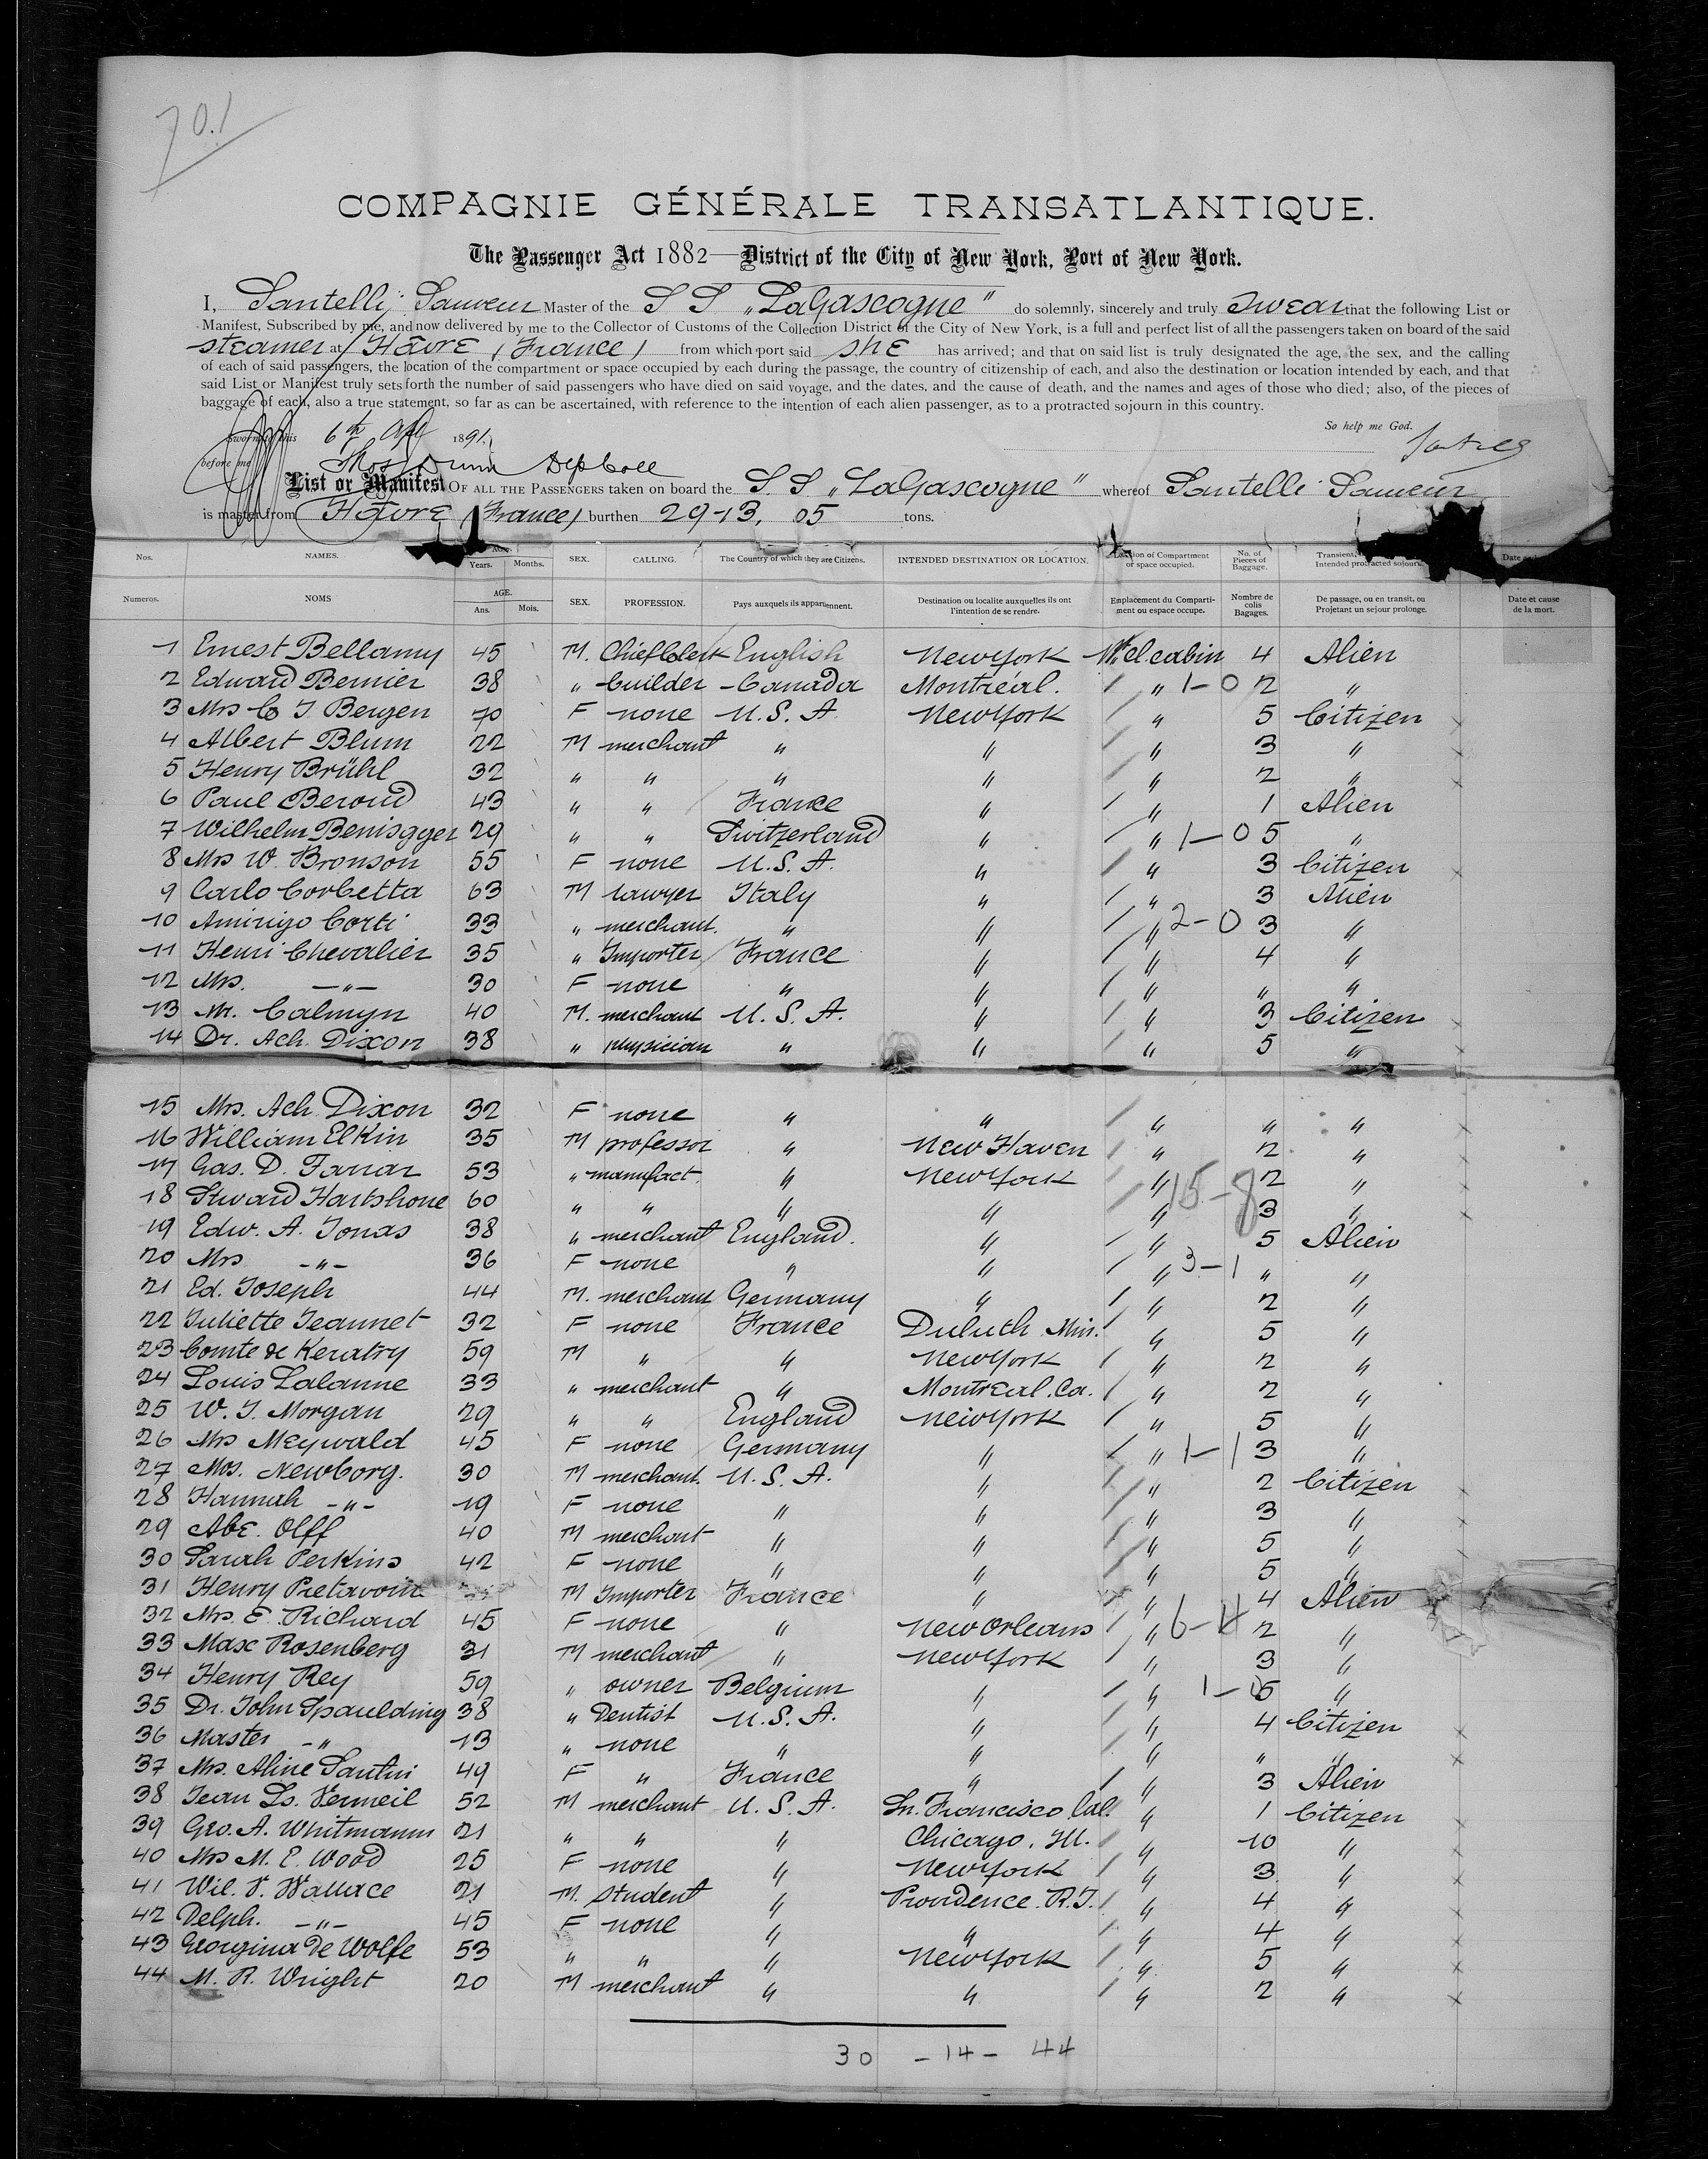 70.1
COMPAGNIE GÉNÉRALE TRANSATLANTIQUE.
The Passenger Act 1882—District of the City of New York, Port of New York.
I, Santelli Sauveur Master of the S S „LaGascogne" do solemnly, sincerely and truly swear that the following List or
Manifest, Subscribed by me, and now delivered by me to the Collector of Customs of the Collection District of the City of New York, is a full and perfect list of all the passengers taken on board of the said
steamer at Hâvre (France) from which port said she has arrived; and that on said list is truly designated the age, the sex, and the calling
of each of said passengers, the location of the compartment or space occupied by each during the passage, the country of citizenship of each, and also the destination or location intended by each, and that
said List or Manifest truly sets forth the number of said passengers who have died on said voyage, and the dates, and the cause of death, and the names and ages of those who died; also, of the pieces of
baggage of each, also a true statement, so far as can be ascertained, with reference to the intention of each alien passenger, as to a protracted sojourn in this country.
So help me God.
Sworn to this 6th Apl 1891.
before me Thos Dunn Dep Coll
List or Manifest OF ALL THE PASSENGERS taken on board the S.S „LaGascogne" whereof Santelli Sauveur
is master from Hâvre (France) burthen 29-13, 05 tons.
Nos. NAMES. AGE. Years. Months. SEX. CALLING. The Country of which they are Citizens. INTENDED DESTINATION OR LOCATION. Location of Compartment or space occupied. No. of Pieces of Baggage. Transient, Intended protracted sojourn. Date
Numeros. NOMS AGE. Ans. Mois. SEX. PROFESSION. Pays auxquels ils appartiennent. Destination ou localite auxquelles ils ont l'intention de se rendre. Emplacement du Compartiment ou espace occupe. Nombre de colis Bagages. De passage, ou en transit, ou Projetant un sejour prolonge. Date et cause de la mort.
1 Ernest Bellamy 45 M. Chief Clerk English New York cl. cabin 4 Alien
2 Edward Bernier 38 " builder - Canada Montréal. " 1-0 2 "
3 Mrs C J. Bergen 70 F none U.S.A. New York " 5 Citizen
4 Albert Blum 22 M merchant " " " 3 "
5 Henry Brühl 32 " " " " " 2 "
6 Paul Beroud 43 " " France " " 1 Alien
7 Wilhelm Benisgger 29 " " Switzerland " " 1-0 5 "
8 Mrs W. Bronson 55 F none U.S.A. " " 3 Citizen
9 Carlo Corbetta 63 M lawyer Italy " " 3 Alien
10 Amirigo Corti 33 " merchant. " " " 2-0 3 "
11 Henri Chevalier 35 " Importer France " " 4 "
12 Mrs. -"- 30 F none " " " " "
13 Mr. Calmyn 40 M. merchant U.S.A. " " 3 Citizen
14 Dr. Ach. Dixon 38 " physician " " " 5 "
15 Mrs. Ach. Dixon 32 F none " " " " "
16 William Elkin 35 M professor " New Haven " 2 "
17 Gas. D. Farrar 53 " manufact. " New York " 2 "
18 Stward Hartshone 60 " " " " " 15-8 3 "
19 Edw. A. Jonas 38 " merchant England. " " 5 Alien
20 Mrs -"- 36 F none " " " 3-1 " "
21 Ed. Joseph 44 M. merchant Germany " " 2 "
22 Juliette Jeannet 32 F none France Duluth Min. " 5 "
23 Comte de Keratry 59 M " " New York " 2 "
24 Louis Lalanne 33 " merchant " Montreal. Ca. " 2 "
25 W. J. Morgan 29 " " England New York " 5 "
26 Mrs Meywald 45 F none Germany " " 1-1 3 "
27 Mos. Newborg. 30 M merchant. U.S.A. " " 2 Citizen
28 Hannah -"- 19 F none " " " 3 "
29 Abe. Olff 40 M merchant " " " 5 "
30 Sarah Perkins 42 F none " " " 5 "
31 Henry Pretavoin M Importer France " " 4 Alien
32 Mrs. E. Richard 45 F none " New Orleans " 6-4 2 "
33 Max Rosenberg 31 M merchant " New York " 3 "
34 Henry Rey 59 " owner Belgium " " 1-0 5 "
35 Dr. John Spaulding 38 " Dentist U.S.A. " " 4 Citizen
36 Master -" 13 " none " " " " "
37 Mrs. Aline Santini 49 F " France " " 3 Alien
38 Jean Ls. Vermeil 52 M merchant U.S.A. Sn. Francisco Cal. " 1 Citizen
39 Geo. A. Whitmann 21 " " " Chicago, Ill. " 10 "
40 Mrs M. E. Wood 25 F none " New York " 3 "
41 Wil. V. Wallace 21 M. student " Providence. R.I. " 4 "
42 Delph. -"- 45 F none " " " 4 "
43 Georgina de Wolfe 53 " " " New York " 5 "
44 M. R. Wright 20 M merchant " " " 2 "
30 - 14 - 44